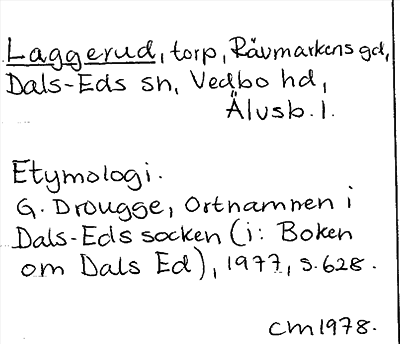 Laggerud, torp, Rävmarkens gd,
Dals-Eds sn, Vedbo hd,
Älvsb. l.
Etymologi.
G. Drougge, Ortnamnen i
Dals-Eds socken (i: Boken
om Dals Ed), 1977, s. 628.
cm 1978.